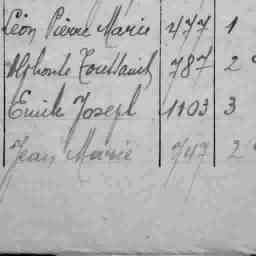 Léon Pierre Marie 477 1
Alphonse Toussaint 787 2
Emile Joseph 1103 3
Jean Marie 747 2